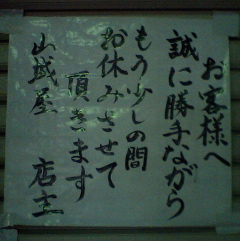 お客様へ
誠に勝手ながら
もう少しの間
お休みさせて
頂きます
山城屋 店主